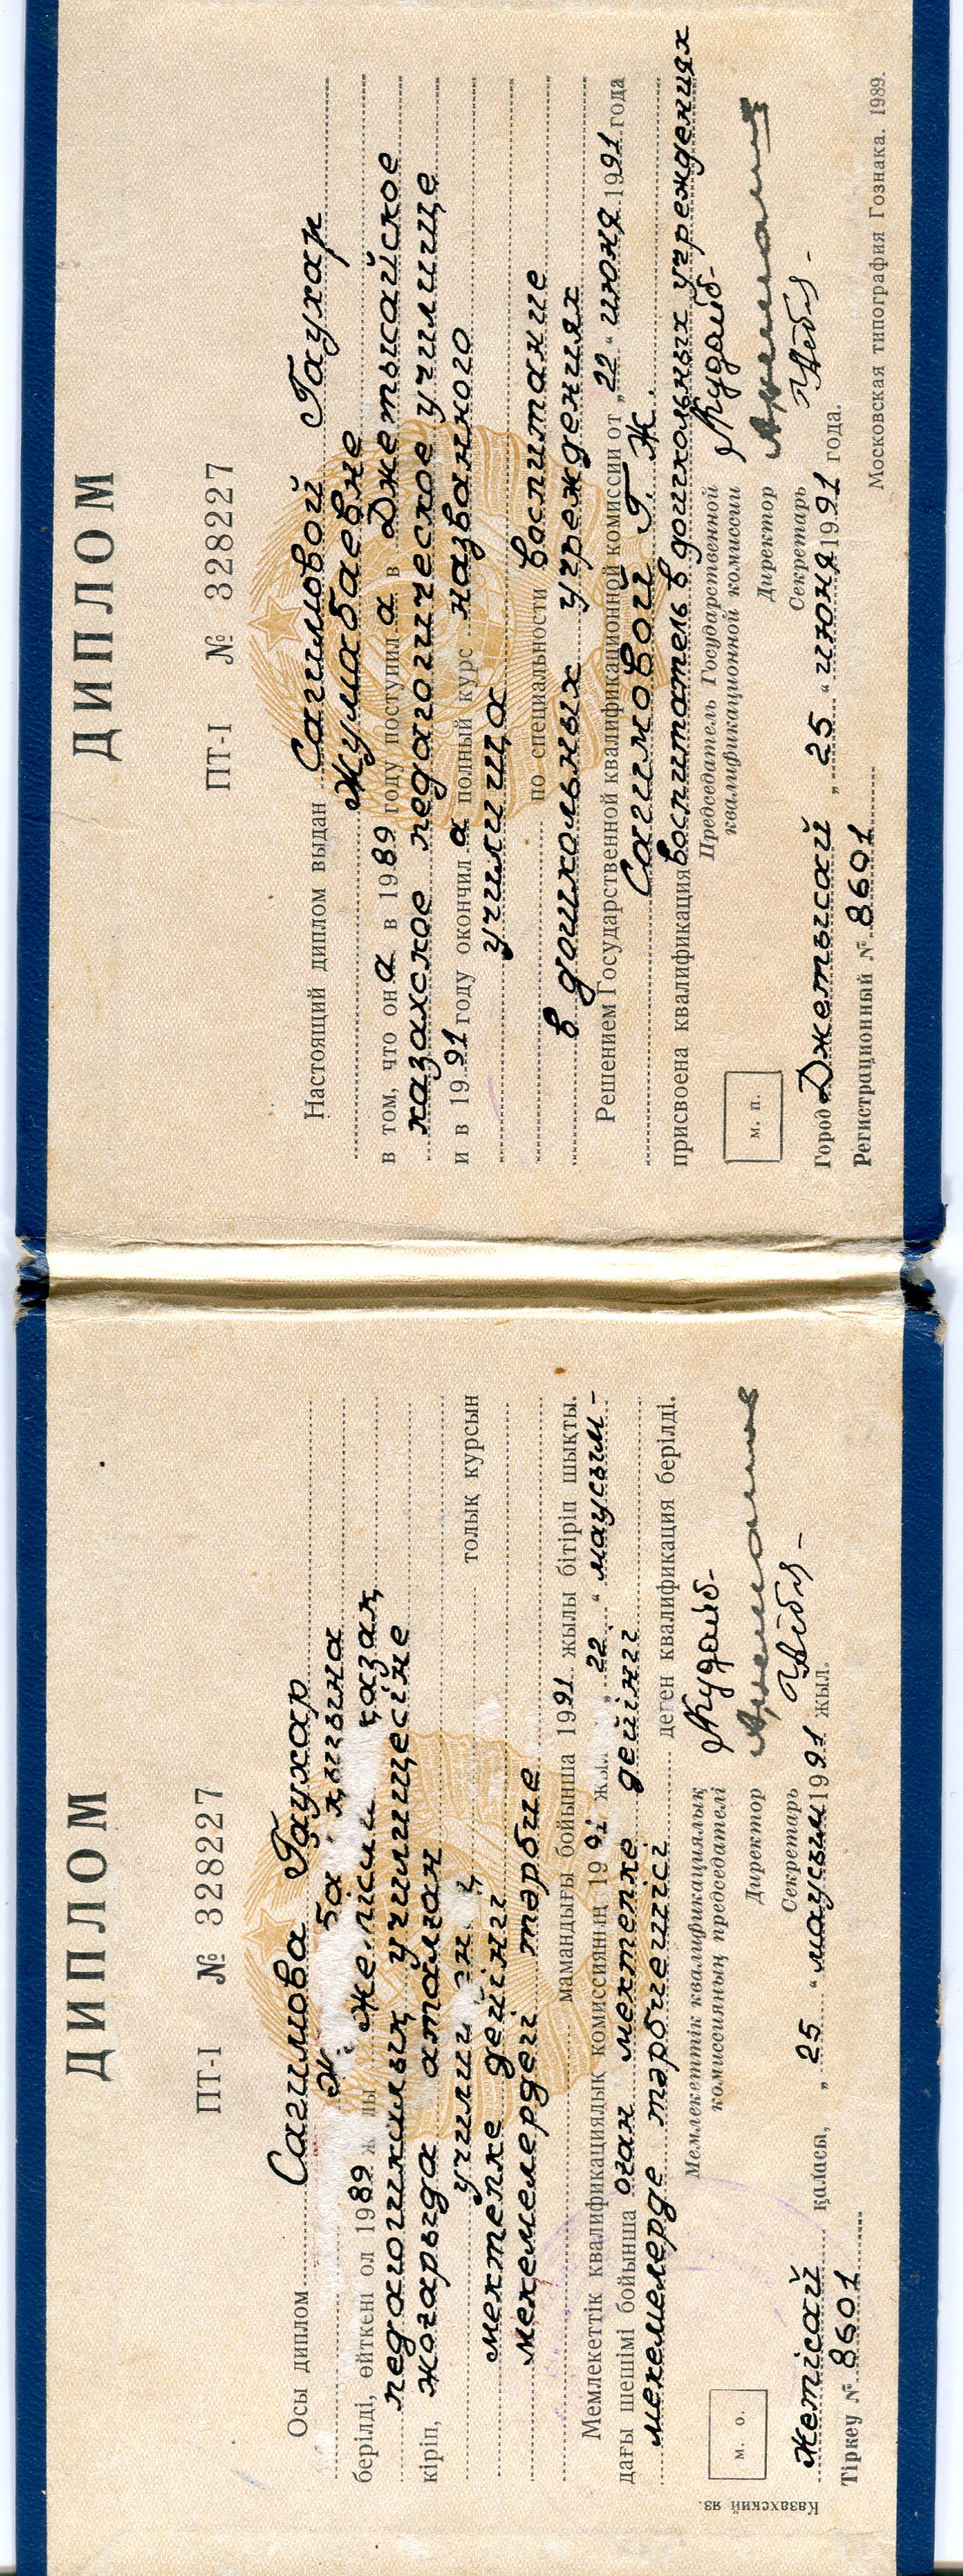 ДИПЛОМ
ПТ-I № 328227
Осы диплом Сагимова Гаухар
қызына
берілді, өйткені ол 1989 ж лы қазақ
педагогикалық училищесіне
кіріп, жоғарыда аталған
толық курсын
мектепке дейінгі
мекемелердегі тәрбие
мамандығы бойынша 1991 жылы бітіріп шықты.
Мемлекеттік квалификациялық комиссияның 1991 „22“ маусым-
дағы шешімі бойынша оған мектепке дейінгі
мекемелерде тәрбиешісі деген квалификация берілді.
Мемлекеттік квалификациялық
комиссияның председателі
Директор
Секретарь
м. о.
Жетісай қаласы, „25“ маусым 1991 жыл.
Тіркеу № 8601
Казахский яз.
ДИПЛОМ
ПТ-I № 328227
Настоящий диплом выдан Сагимовой Гаухар
Жумабаевне
в том, что он а в 1989 году поступил а в Джетысайское
казахское педагогическое училище
и в 1991 году окончил а полный курс названного
училища
по специальности воспитание
в дошкольных учреждениях
Решением Государственной квалификационной комиссии от „22“ июня 1991 года
Сагимовой Г. Ж.
присвоена квалификация воспитатель в дошкольных учреждениях
Председатель Государственной
квалификационной комиссии
Директор
Секретарь
м. п.
Город Джетысай „25“ июня 1991 года.
Регистрационный № 8601
Московская типография Гознака. 1989.